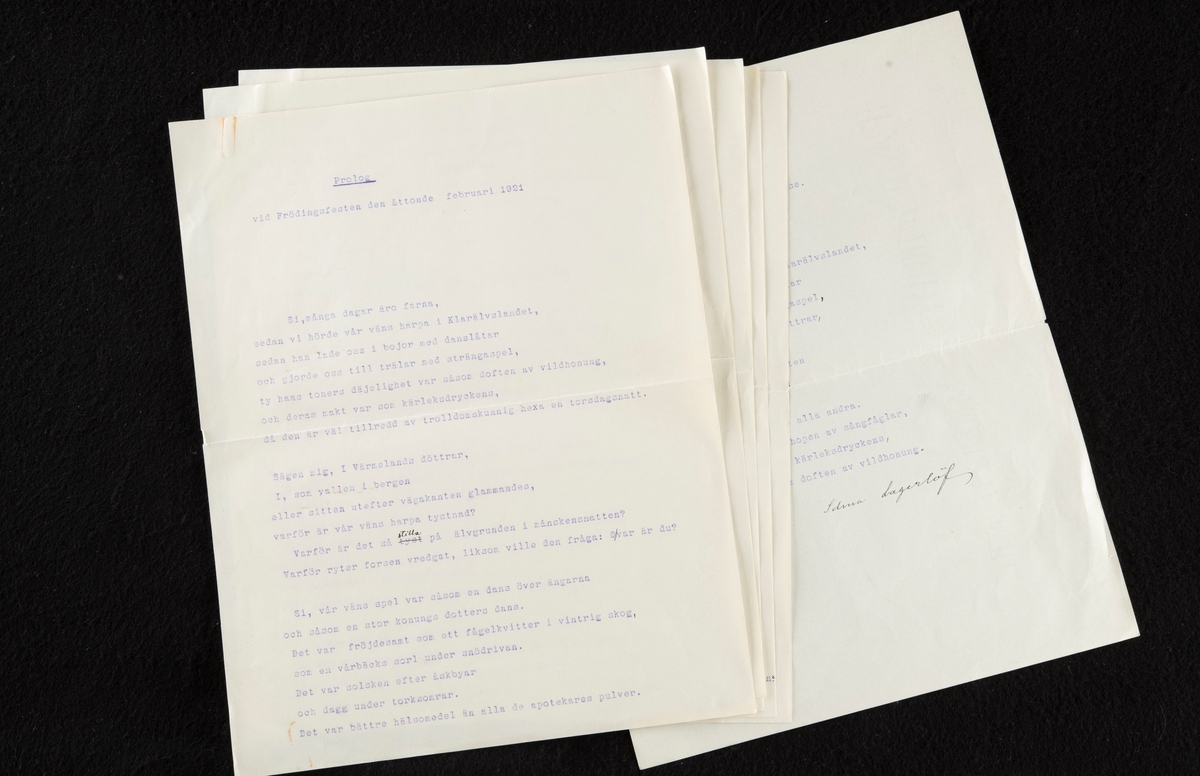 Prolog
vid Frödingsfesten den åttonde februari 1921
Si, många dagar äro farna,
sedan vi hörde vår väns harpa i Klarälvslandet,
sedan han lade oss i bojor med danslåtar
och gjorde oss till trälar med strängaspel,
ty hans toners däjelighet var såsom doften av vildhonung,
och deras makt var som kärleksdryckens,
då den är väl tillredd av trolldomskunnig hexa en torsdagsnatt.
Sägen mig, I Värmelands döttrar,
I, som vallen i bergen
eller sitten utefter vägakanten glammandes,
varför är vår väns harpa tystnad?
Varför är det så tyst stilla på älvgrunden i månskensnatten?
Varför ryter forsen vredgat, liksom ville den fråga: Hvar är du?
Si, vår väns spel var såsom en dans över ängarna
och såsom en stor konungs dotters dans.
Det var fröjdesamt som ett fågelkvitter i vintrig skog,
som en vårbäcks sorl under snödrivan.
Det var solsken efter åskbyar
och dagg under torksomrar.
Det var bättre hälsomedel än alla de apotekares pulver.
se.
arälvslandet,
ar
aspel,
ttrar,
ten
alla andra.
hopen av sångfåglar,
kärleksdryckens,
doften av vildhonung.
Selma Lagerlöf